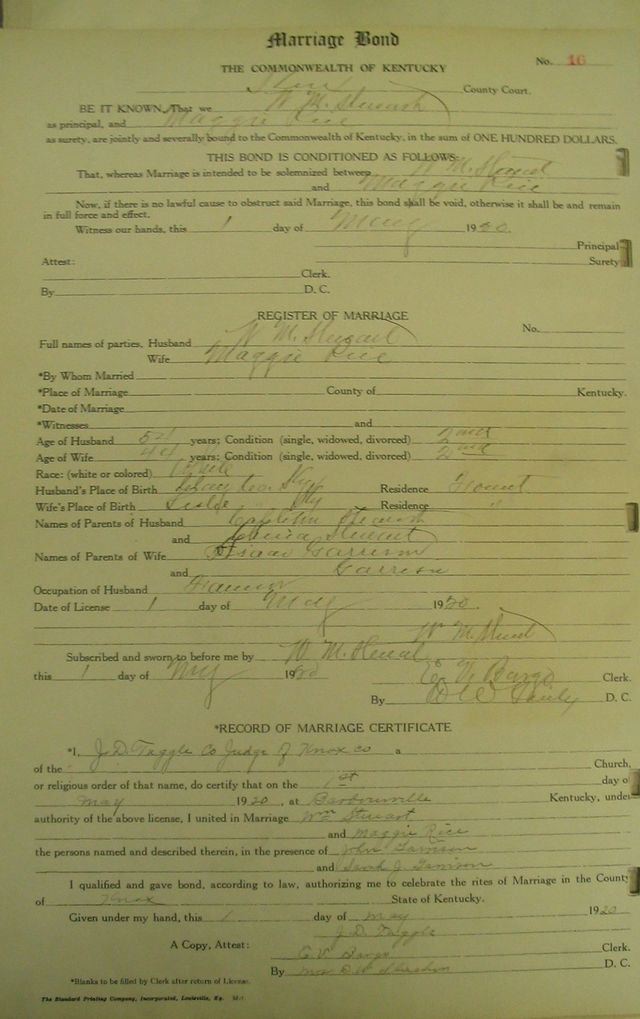 Marriage Bond
No. 16
THE COMMONWEALTH OF KENTUCKY
County Court.
BE IT KNOWN, That we W. M. Stewart
as principal, and Maggie Rice
as surety, are jointly and severally bound to the Commonwealth of Kentucky, in the sum of ONE HUNDRED DOLLARS.
THIS BOND IS CONDITIONED AS FOLLOWS:
That, whereas Marriage is intended to be solemnized between W. M. Stewart
and Maggie Rice
Now, if there is no lawful cause to obstruct said Marriage, this bond shall be void, otherwise it shall be and remain
in full force and effect.
Witness our hands, this 1 day of May 1920.
Principal
Attest: Surety
Clerk.
By D. C.
REGISTER OF MARRIAGE
No.
Full names of parties, Husband W. M. Stewart
Wife Maggie Rice
*By Whom Married
*Place of Marriage County of Kentucky.
*Date of Marriage
*Witnesses and
Age of Husband 54 years; Condition (single, widowed, divorced) 2nd
Age of Wife 44 years; Condition (single, widowed, divorced) 2nd
Race: (white or colored) White
Husband's Place of Birth Clay Co. Ky Residence
Wife's Place of Birth Ky Residence "
Names of Parents of Husband Stewart
and Stewart
Names of Parents of Wife Isaac Garrison
and Garrison
Occupation of Husband Farmer
Date of License 1 day of May 1920.
W. M. Stewart
Subscribed and sworn to before me by W. M. Stewart
this 1 day of May 1920 C. V. Bargo Clerk.
By D. C.
*RECORD OF MARRIAGE CERTIFICATE
*I, J. D. Tuggle Co Judge of Knox Co a
of the Church,
or religious order of that name, do certify that on the 1st day of
May 1920, at Barbourville Kentucky, under
authority of the above license, I united in Marriage Wm Stewart
and Maggie Rice
the persons named and described therein, in the presence of John Garrison
and Sarah J. Garrison
I qualified and gave bond, according to law, authorizing me to celebrate the rites of Marriage in the County
of Knox State of Kentucky.
Given under my hand, this 1 day of May 1920
J. D. Tuggle
A Copy, Attest: C. V. Bargo Clerk.
By Mrs D. W. D. C.
*Blanks to be filled by Clerk after return of License.
The Standard Printing Company, Incorporated, Louisville, Ky.